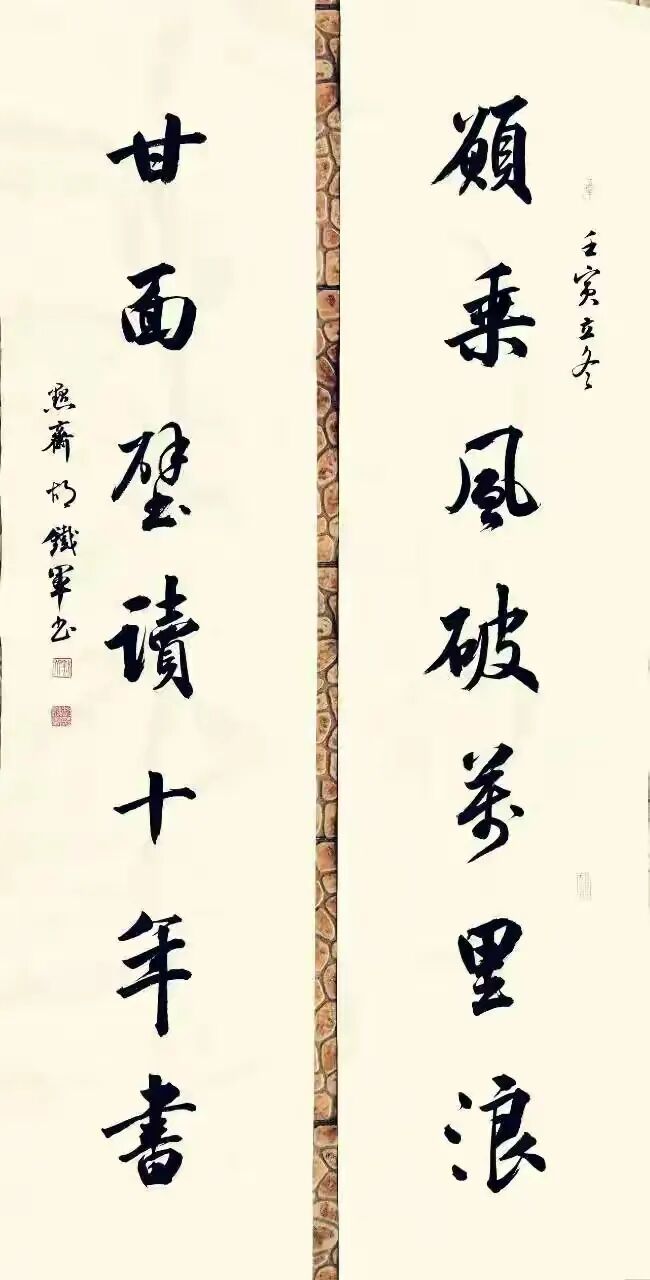 願乘風破萬里浪
壬寅立冬
甘面壁讀十年書
齋胡鐵軍书